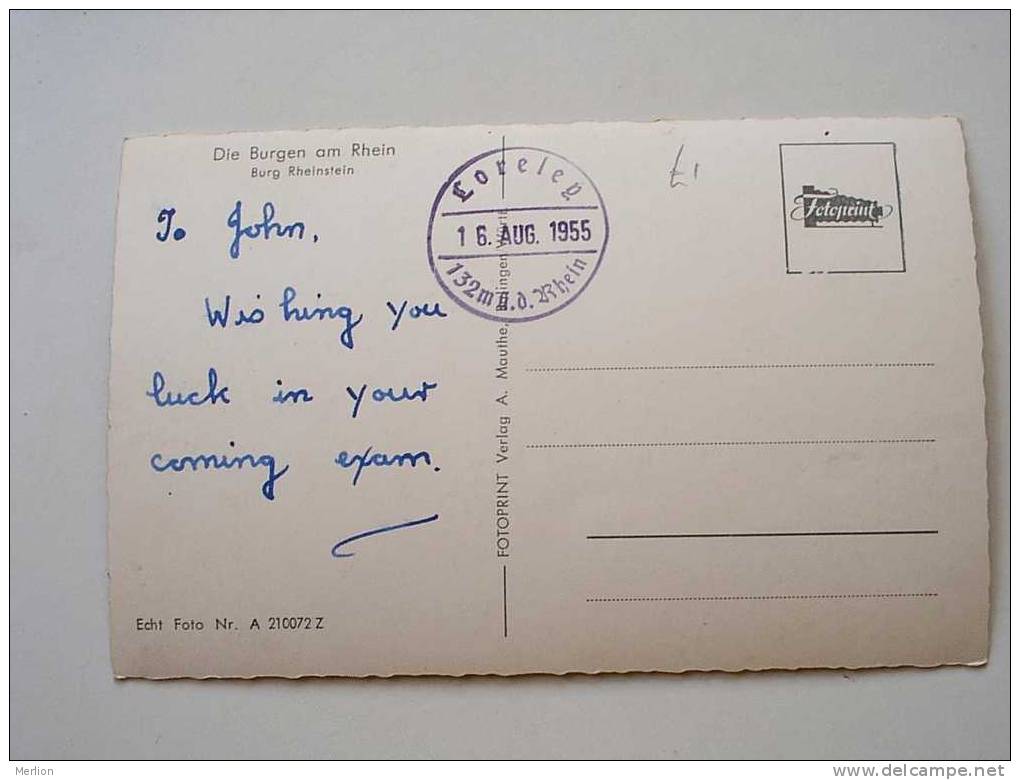 Die Burgen am Rhein
Burg Rheinstein
To John,
Wishing you
luck in your
coming exam.
Echt Foto Nr. A 210072 Z
Loreley
16. AUG. 1955
132m ü.d. Rhein
FOTOPRINT Verlag A. Mauthe,
£1
Fotoprint
Merlion
www.delcampe.net